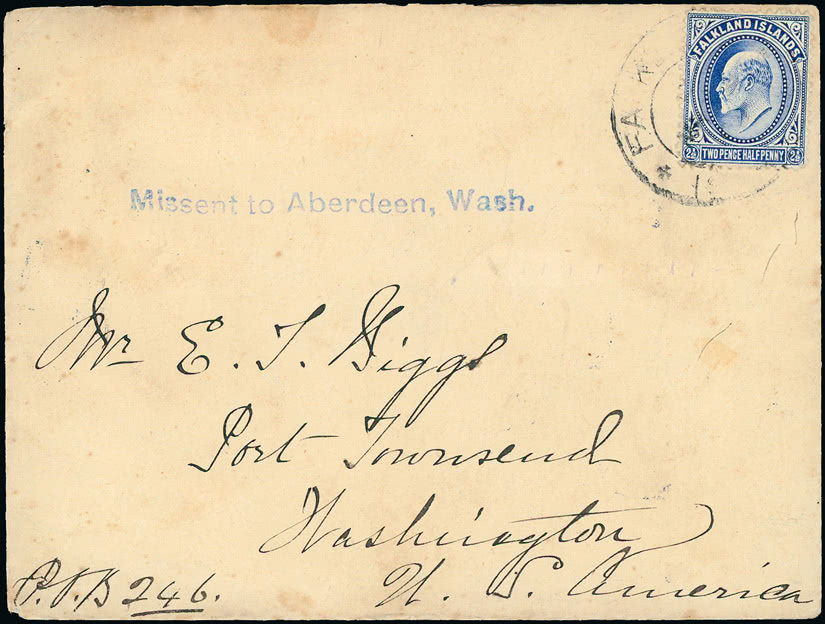 FALKLAND ISLANDS
2½ TWO PENCE HALFPENNY 2½
FA
Missent to Aberdeen, Wash.
Mr E. T. Biggs
Port Townsend
Washington
U. S. America
P.O.B 246.